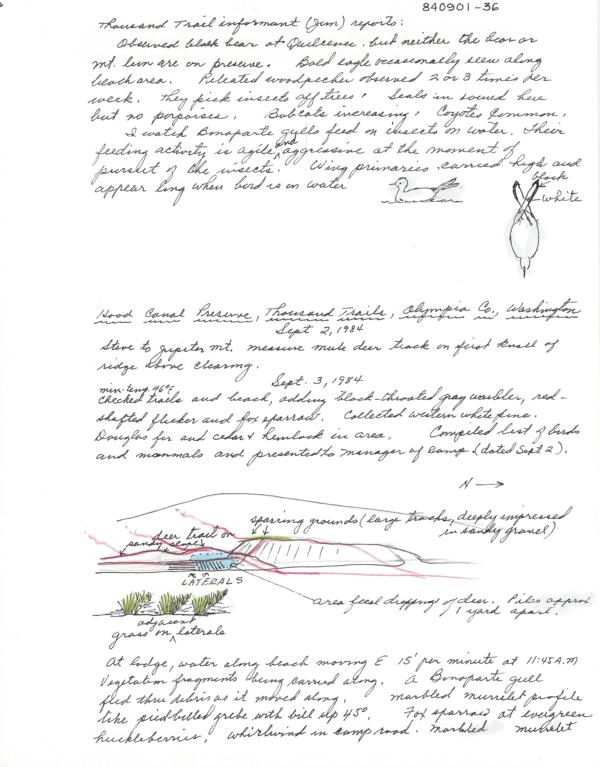 840901-36
Thousand Trail informant (Jim) reports:
Observed black bear at Quilcene. but neither the bear or
mt. lion are on preserve. Bald eagle occasionally seen along
beach area. Pileated woodpecker observed 2 or 3 times per
week. They pick insects off trees. Seals in sound here
but no porpoises. Bobcats increasing. Coyotes Common.
I watch Bonaparte gulls feed on insects on water. Their
feeding activity is agile and aggressive at the moment of
pursuit of the insects. Wing primaries carried high and
appear long when bird is on water
black
white
Hood Canal Preserve, Thousand Trails, Olympia Co., Washington
Sept 2, 1984
Steve to Jupiter Mt. measure mule deer track on first knoll of
ridge above clearing.
Sept. 3, 1984
min. temp. 46°F
Checked trails and beach, adding black-throated gray warbler, red-
shafted flicker and fox sparrow. Collected western white pine.
Douglas fir and cedar & hemlock in area. Compiled list of birds
and mammals and presented to manager of camp (dated Sept 2).
N →
sparring grounds (large tracks, deeply impressed
in sandy gravel)
deer trail on
sandy slopes
LATERALS
area fecal droppings of deer. Piles approx
1 yard apart.
adjacent
grass on laterals
At lodge, water along beach moving E 15' per minute at 11:45 A.M
Vegetation fragments being carried along. A Bonaparte gull
fed thru debris as it moved along. marbled murrelet profile
like pied-billed grebe with bill up 45°. Fox sparrow at evergreen
huckleberries. whirlwind in camp road. marbled murrelet